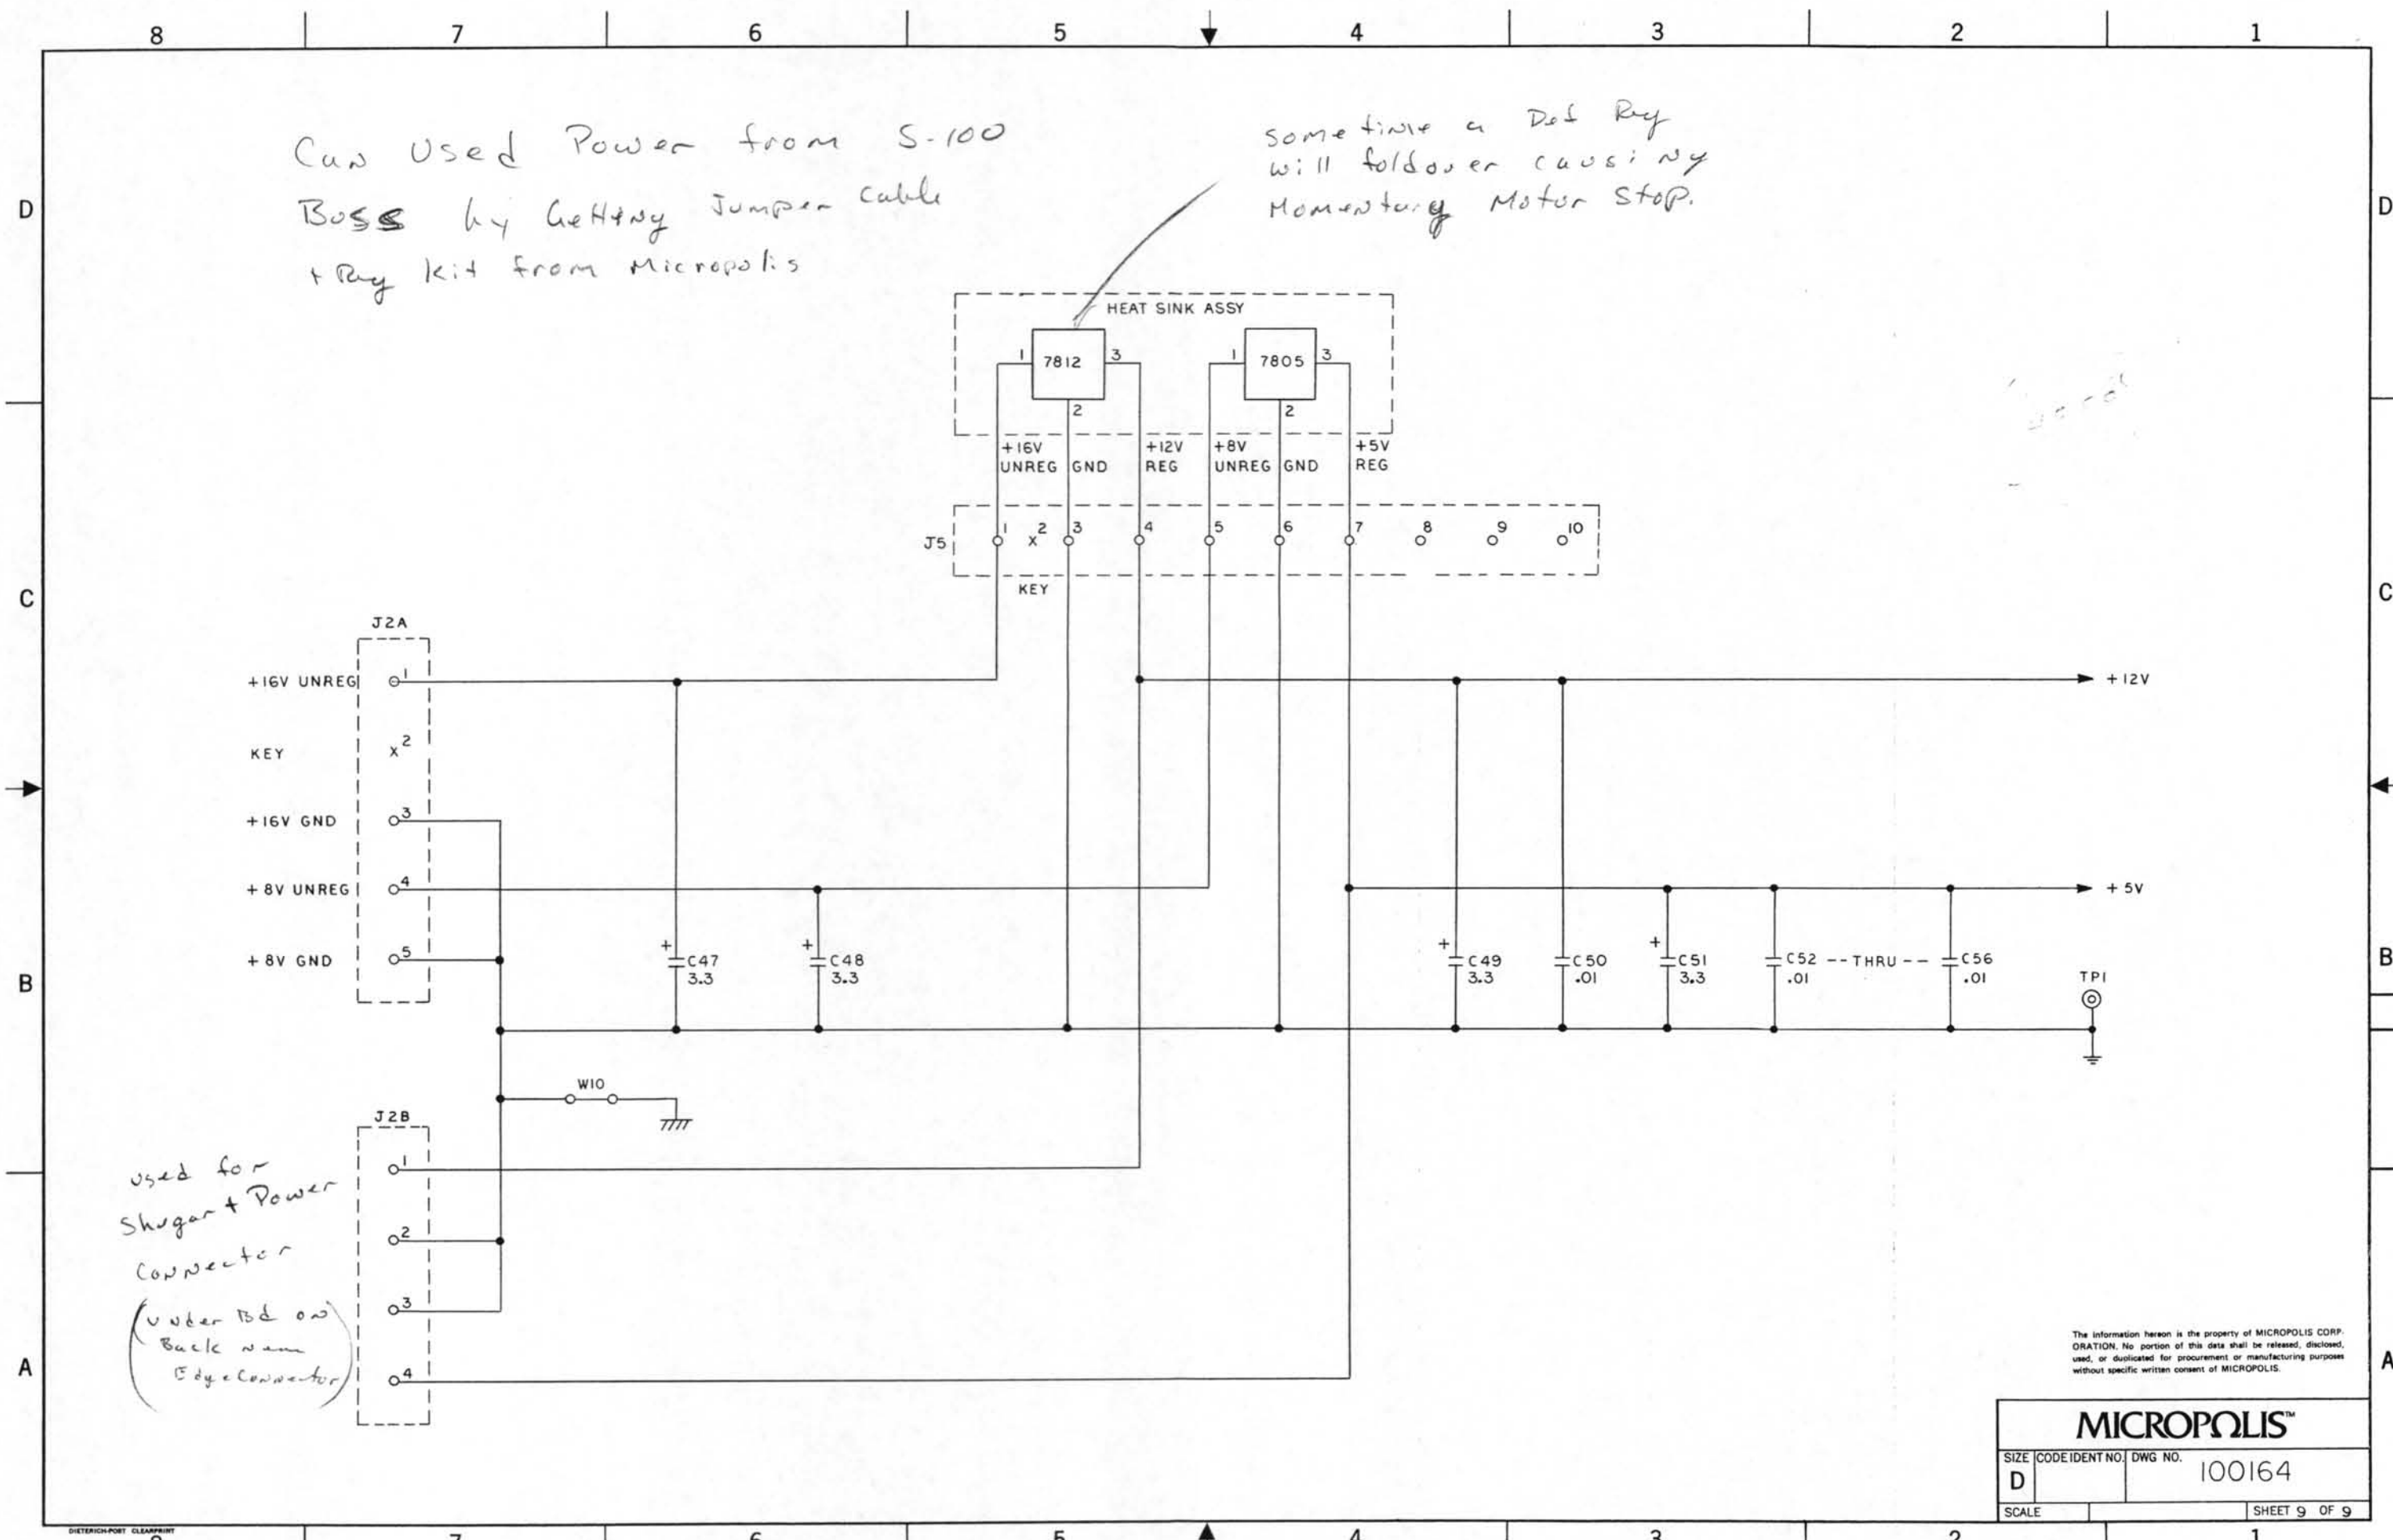 8 7 6 5 4 3 2 1
Can Used Power from S-100
Buss by Getting Jumper Cable
+ Reg kit from Micropolis
some time a Def Reg
will foldover causing
Momentary Motor Stop.
D D
HEAT SINK ASSY
1 7812 3 1 7805 3
2 2
+16V +12V +8V +5V
UNREG GND REG UNREG GND REG
J5 1 x2 3 4 5 6 7 8 9 10
KEY
C C
J2A
+16V UNREG 1
+12V
KEY x2
+16V GND 3
+8V UNREG 4
+5V
+8V GND 5
+ C47 3.3
+ C48 3.3
+ C49 3.3
C50 .01
+ C51 3.3
C52 .01 --THRU-- C56 .01
TP1
B B
W10
J2B
1
2
3
4
used for
Shugart Power
Connector
(Under Bd on
Back
Edge Connector)
A A
The information hereon is the property of MICROPOLIS CORP-
ORATION. No portion of this data shall be released, disclosed,
used, or duplicated for procurement or manufacturing purposes
without specific written consent of MICROPOLIS.
MICROPOLIS™
SIZE CODE IDENT NO. DWG NO.
D 100164
SCALE SHEET 9 OF 9
DIETERICH-POST CLEARPRINT
7 6 5 4 3 2 1